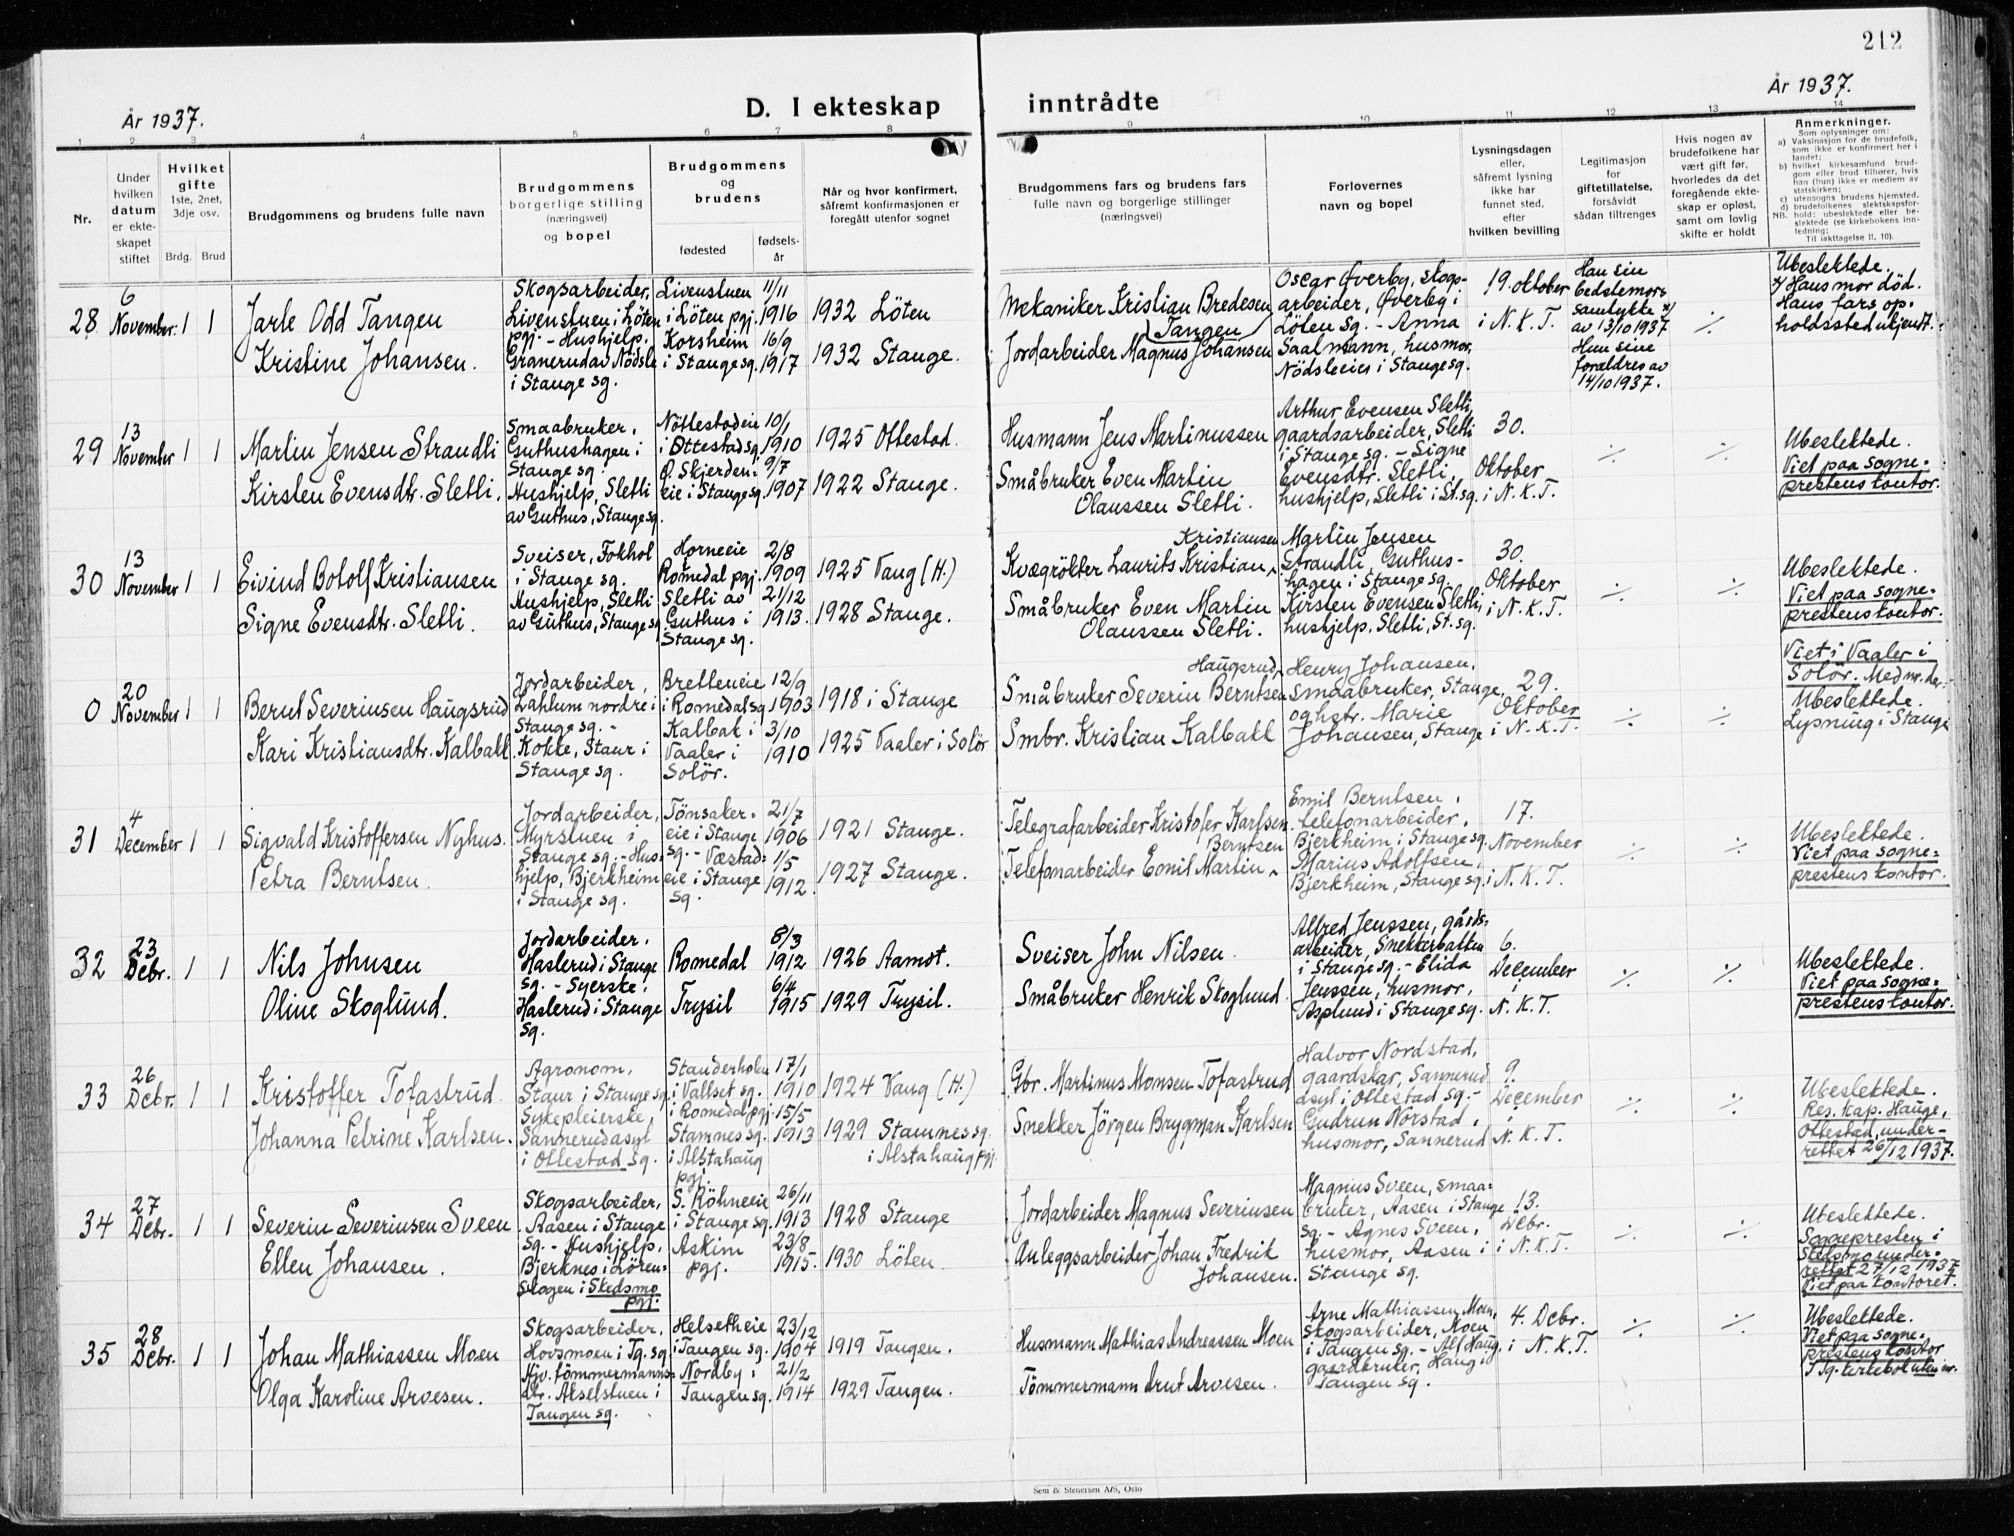 212
År 1937.
D. I ekteskap inntrådte
År 1937.
1 2 3 4 5 6 7 8 9 10 11 12 13 14
Nr.
Under hvilken datum er ekteskapet stiftet
Hvilket gifte 1ste, 2net, 3dje osv.
Brdg. Brud
Brudgommens og brudens fulle navn
Brudgommens borgerlige stilling (næringsvei) og bopel
Brudgommens og brudens
fødested
fødselsår
Når og hvor konfirmert, såfremt konfirmasjonen er foregått utenfor sognet
Brudgommens fars og brudens fars fulle navn og borgerlige stillinger (næringsvei)
Forlovernes navn og bopel
Lysningsdagen eller, såfremt lysning ikke har funnet sted, efter hvilken bevilling
Legitimasjon for giftetillatelse, forsåvidt sådan tiltrenges
Hvis nogen av brudefolkene har vært gift før, hvorledes da det foregående ekteskap er opløst, samt om lovlig skifte er holdt
Anmerkninger.
Som oplysninger om:
a) Vaksinasjon for de brudefolk, som ikke er konfirmert her i landet;
b) hvilket kirkesamfund brudgom eller brud tilhører, hvis han (hun) ikke er medlem av statskirken;
c) utensogns brudens hjemsted.
d) brudefolkenes slektskapsforhold: ubeslektede eller beslektede (se kirkebokens innledning;
NB. Til iakttagelse II. 10).
28
6 November
1 1
Jarle Odd Tangen
Kristine Johansen.
Skogsarbeider,
Livenstuen i Löten
pgj. - Hushjelp,
Granerud av Nödsle
i Stange sg.
Livenstuen
i Löten pgj.
Korsheim
i Stange sg.
11/11
1916
16/9
1917
1932 Löten
1932 Stange.
Mekaniker Kristian Bredesen
Tangen
Jordarbeider Magnus Johansen
Oscar Øverby, skogs-
arbeider, Øverby i
Löten sg. - Anna
Saalmann, husmor,
Nödsleeie i Stange sg.
19. oktober
i N.K.T.
Han sin
bedstemors
samtykke
av 13/10 1937
Hun sine
foreldres av
14/10 1937.
Ubeslektede.
Hans mor död.
Hans fars op-
holdssted ukjendt.
29
13 November
1 1
Martin Jensen Strandli
Kirsten Evensdtr. Sletli.
Smaabruker,
Guthushagen i
Stange sg.
Hushjelp, Sletli
av Guthus, Stange sg.
Nöttestadeie
i Ottestad sg.
Ö. Skjerden-
eie i Stange sg.
10/1
1910
9/7
1907
1925 Ottestad.
1922 Stange.
Husmann Jens Martinussen
Småbruker Even Martin
Olaussen Sletli.
Arthur Evensen Sletli,
gaardsarbeider, Sletli
i Stange sg. - Signe
Evensdtr. Sletli,
hushjelp, Sletli i St.sg.
30.
Oktober
i N.K.T.
Ubeslektede.
Viet paa sogne-
prestens kontor.
30
13 November
1 1
Eivind Botolf Kristiansen
Signe Evensdtr. Sletli.
Sveiser, Fokhol
i Stange sg.
Hushjelp, Sletli
av Guthus, Stange sg.
Horneeie
Romedal pgj.
Sletli av
Guthus i
Stange sg.
2/8
1909
21/12
1913.
1925 Vang (H.)
1928 Stange.
Kristiansen
Kvægrökter Laurits Kristian
Småbruker Even Martin
Olaussen Sletli.
Martin Jensen
Strandli, Guthus-
hagen i Stange sg.
Kirsten Evensen Sletli,
hushjelp, Sletli, St.sg.
30.
Oktober
i N.K.T.
Ubeslektede.
Viet paa sogne-
prestens kontor.
0
20 November
1 1
Bernt Severinsen Haugsrud
Kari Kristiansdtr. Kalbakk
Jordarbeider,
Lahlum nordre i
Stange sg. -
Kokke, Staur i
Stange sg.
Bretteneie
i Romedal sg
Kalbak i
Vaaler i
Solör.
12/9
1903
3/10
1910
1918 i Stange
1925 Vaaler i Solör
Haugsrud
Småbruker Severin Berntsen
Smbr. Kristian Kalbakk
Henry Johansen,
smaabruker, Stange,
og hstr. Marie
Johansen, Stange
29.
Oktober
i N.K.T.
Viet i Vaaler i
Solör. Med nr. der.
Ubeslektede.
Lysning i Stange
31
4 December
1 1
Sigvald Kristoffersen Nyhus.
Petra Berntsen.
Jordarbeider,
Myrstuen i
Stange sg. - Hus-
hjelp, Bjerkheim
i Stange sg.
Tönsaker-
eie i Stange
sg. - Væstad-
eie i Stange
sg.
21/7
1906
1/5
1912.
1921 Stange.
1927 Stange.
Telegrafarbeider Kristofer Karlsen
Berntsen
Telefonarbeider Emil Martin
Emil Berntsen,
telefonarbeider,
Bjerkheim i Stange sg.
Marius Adolfsen,
Bjerkheim, Stange sg.
17.
November
i N.K.T.
Ubeslektede.
Viet paa sogne-
prestens kontor.
32
23 Debr.
1 1
Nils Johnsen
Oline Skoglund.
Jordarbeider,
Haslerud i Stange
sg. - Syerske,
Haslerud i Stange
sg.
Romedal
Trysil
8/3
1912
6/4
1915
1926 Aamot.
1929 Trysil.
Sveiser John Nilsen.
Småbruker Henrik Skoglund.
Alfred Jenssen, gårds-
arbeider, Snekkerbakken
i Stange sg. - Elida
Jenssen, husmor,
Asplund i Stange sg.
6.
December
i
N.K.T.
Ubeslektede.
Viet paa sogne-
prestens kontor.
33
26 Debr.
1 1
Kristoffer Tofastrud.
Johanna Petrine Karlsen.
Agronom,
Staur i Stange sg.
Sykepleierske,
Sannerudasyl
i Ottestad sg.
Standerholen
i Vallset sg.
i Romedal pgj.
Stamnes sg.
i Alstahaug
pgj.
17/1
1910
15/5
1913
1924 Vang (H.)
1929 Stamnes sg.
i Alstahaug pgj.
Gbr. Martinus Monsen Tofastrud
Snekker Jörgen Brygman Karlsen
Halvor Nordstad,
gaardskar, Sannerud
asyl i Ottestad sg. -
Gudrun Norstad,
husmor, Sannerud
9.
December
i
N.K.T.
Ubeslektede.
Res. kap. Hauge,
Ottestad, under-
rettet 26/12 1937.
34
27 Debr.
1 1
Severin Severinsen Sveen
Ellen Johansen.
Skogsarbeider,
Aasen i Stange
sg. - Hushjelp,
Bjerknes i Lören-
skogen i Skedsmo
pgj.
S. Röhneeie
i Stange sg.
Askim
pgj.
26/11
1913
23/8
1915.
1928 Stange
1930 Löten.
Jordarbeider Magnus Severinsen
Anleggsarbeider Johan Fredrik
Johansen.
Magnus Sveen, smaa-
bruker, Aasen i Stange
sg. - Agnes Sveen,
husmor, Aasen i
Stange sg.
13.
Debr.
i N.K.T.
Ubeslektede.
Sognepresten i
Skedsmo under-
rettet 27/12 1937
Viet paa kontoret.
35
28 Debr.
1 1
Johan Mathiassen Moen
Olga Karoline Arvesen.
Skogsarbeider,
Hovsmoen i Tg. sg.
Hjv. tömmermanns-
dtr. Akselstuen i
Tangen sg.
Helsetheie
i Tangen sg.
Nordby i
Tangen sg.
23/12
1904
21/2
1914
1919 Tangen.
1929 Tangen.
Husmann Mathias Andreassen Moen
Tömmermann Arnt Arvesen.
Arne Mathiassen Moen,
skogsarbeider, Moen
i Tangen sg. - Alf Haug,
gaardbruker, Haug i
Tangen sg.
4. Debr.
i N.K.T.
Ubeslektede.
Viet paa sogne-
prestens kontor
I Tg. kirkebok uten nr.
Sem & Stenersen A/S, Oslo